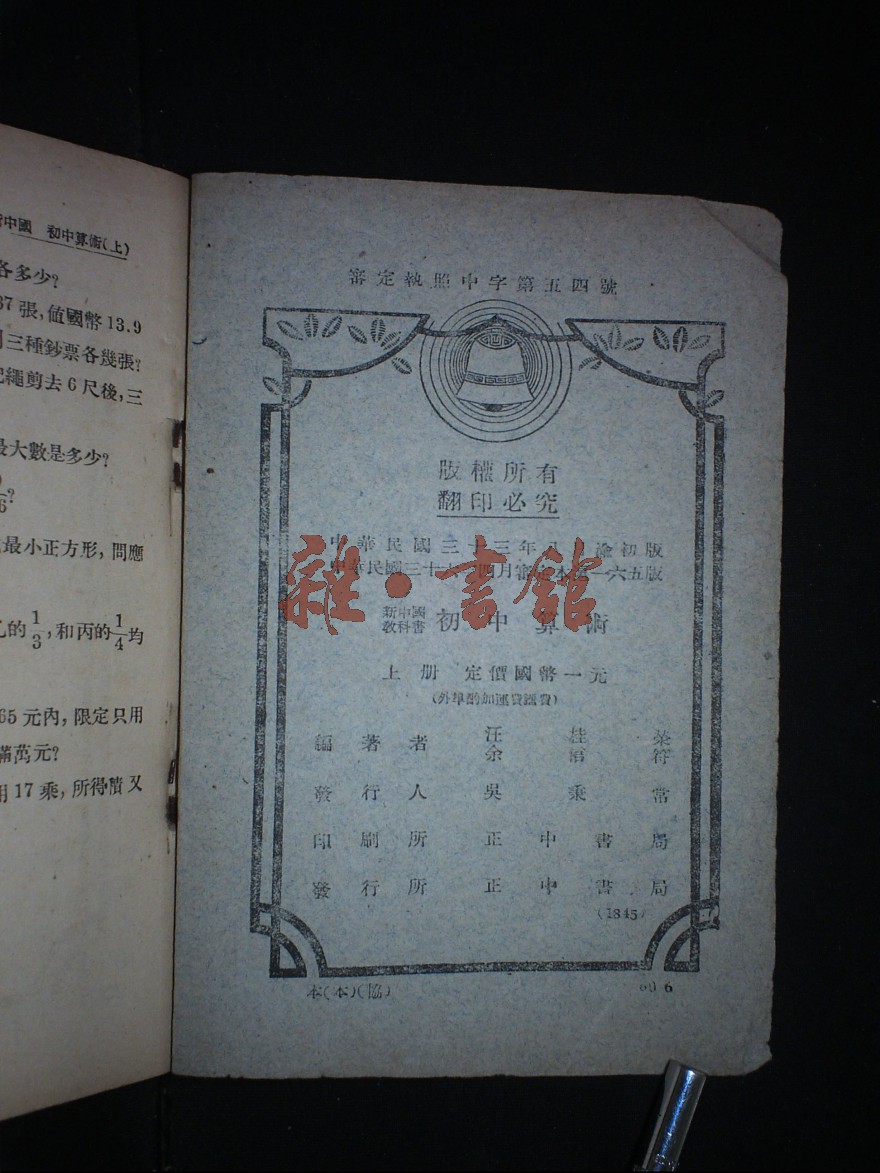 中國 初中算術(上)
各多少?
37張,值國幣13.9
三種鈔票各幾張?
繩剪去6尺後,三
最大數是多少?
6?
最小正方形,問應
的1/3,和丙的1/4均
65元內,限定只用
滿萬元?
用17乘,所得積又
審定執照中字第五四號
版權所有
翻印必究
中華民國三十三年八 渝初版
中華民國三十六 四月審定本 一六五版
新中國
教科書 初中算術
上册 定價國幣一元
(外埠酌加運費匯費)
編著者 汪桂榮
余信符
發行人 吳秉常
印刷所 正中書局
發行所 正中書局
(1845)
本(本)(協)
6
雜·書館